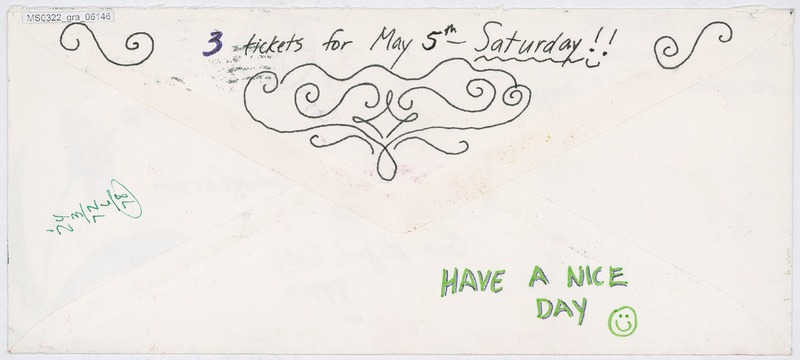 MS0322_gra_06146
3 tickets for May 5th - Saturday!!
HAVE A NICE
DAY